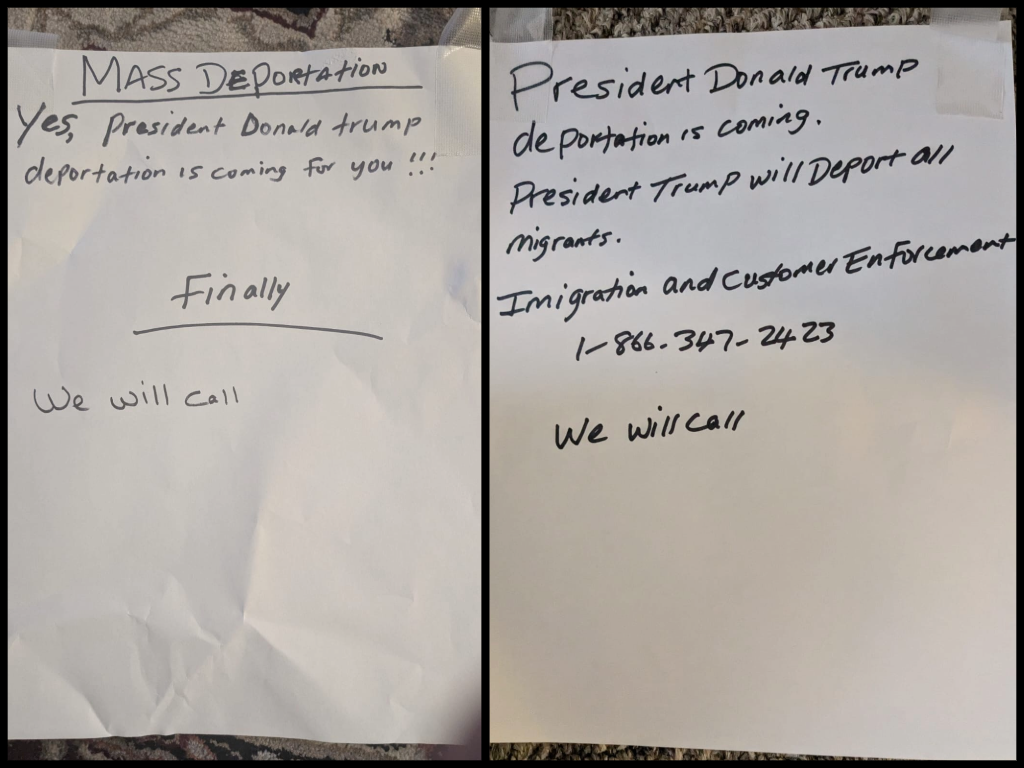 MASS DEPORTATION
Yes, President Donald trump
deportation is coming for you !!!
Finally
We will call
President Donald Trump
deportation is coming.
President Trump will Deport all
migrants.
Imigration and Customer Enforcement
1-866-347-2423
We will call